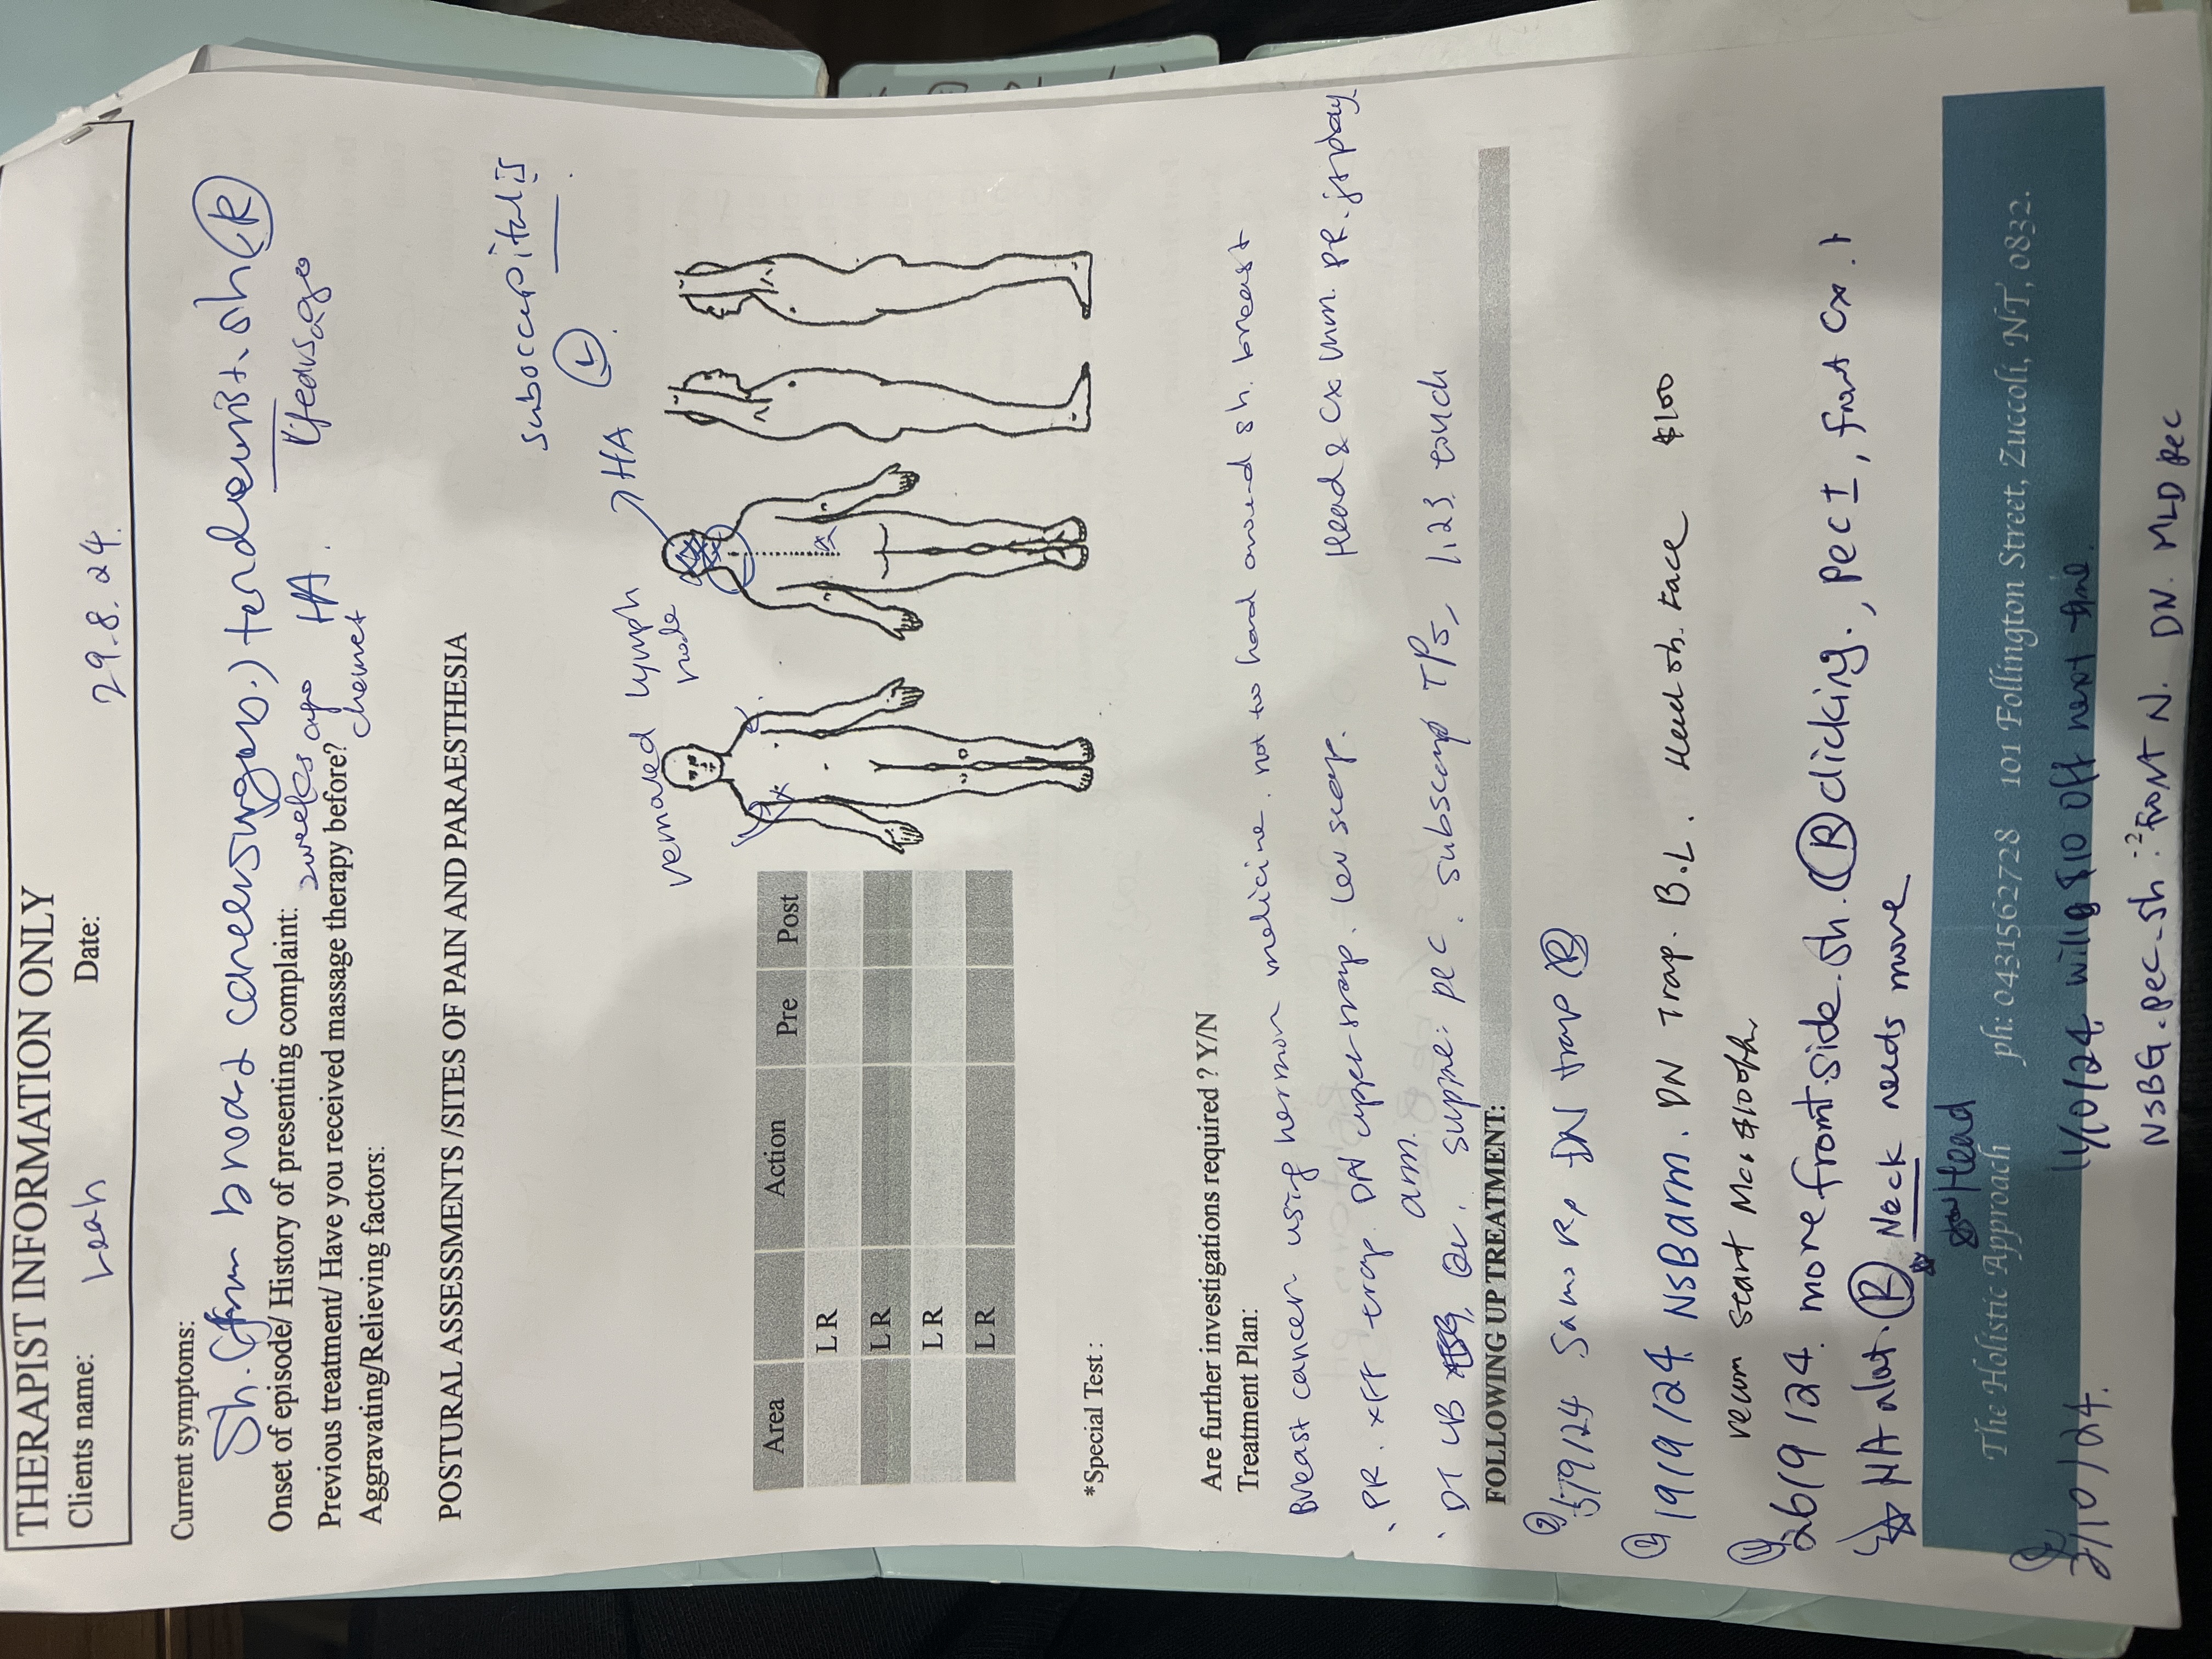 THERAPIST INFORMATION ONLY
Clients name: Leah Date: 29.8.24.
Current symptoms:
Sh. broad cancer surgery tendernist. sh (R)
Onset of episode/ History of presenting complaint: 2weeks ago HA.
Previous treatment/ Have you received massage therapy before?
Aggravating/Relieving factors:
POSTURAL ASSESSMENTS /SITES OF PAIN AND PARAESTHESIA
suboccupitalis
(L)
removed lymph
node
HA
Area Action Pre Post
L R
L R
L R
L R
*Special Test :
Are further investigations required ? Y/N
Treatment Plan:
Breast cancer using hermon medicine. not too hard around sh. breast
PR. XFF trap. DN upper trap. lev scap. Head & Cx mm. PR.
arm.
DT UB supine: pec. subscap TPs, 1.2.3. touch
FOLLOWING UP TREATMENT:
(2)
5/9/24 Same Rp DN trap (R)
19/9/24 NSB arm. DN Trap. B.L. Head sh. Face $100
26/9/24. more front side. sh. (R) clicking., pec I, front Cx.
HA alot. (R) Neck needs more
Head
The Holistic Approach ph: 0431562728 101 Follington Street, Zuccoli, NT, 0832.
2/10/24. $10 off next time.
NSBG. pec-sh. front N. DN. MLD pec